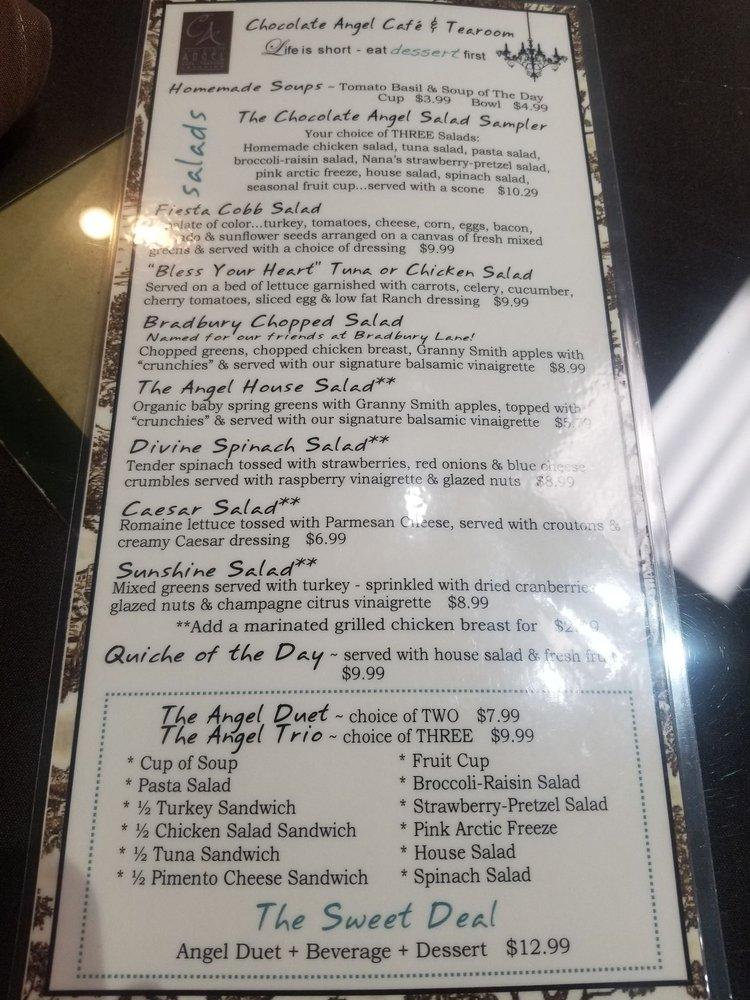 CA
ANGEL
Chocolate Angel Café & Tearoom
Life is short - eat dessert first
Homemade Soups ~ Tomato Basil & Soup of The Day
Cup $3.99 Bowl $4.99
salads
The Chocolate Angel Salad Sampler
Your choice of THREE Salads:
Homemade chicken salad, tuna salad, pasta salad,
broccoli-raisin salad, Nana's strawberry-pretzel salad,
pink arctic freeze, house salad, spinach salad,
seasonal fruit cup...served with a scone $10.29
Fiesta Cobb Salad
of color...turkey, tomatoes, cheese, corn, eggs, bacon,
& sunflower seeds arranged on a canvas of fresh mixed
greens & served with a choice of dressing $9.99
"Bless Your Heart" Tuna or Chicken Salad
Served on a bed of lettuce garnished with carrots, celery, cucumber,
cherry tomatoes, sliced egg & low fat Ranch dressing $9.99
Bradbury Chopped Salad
Named for our friends at Bradbury Lane!
Chopped greens, chopped chicken breast, Granny Smith apples with
"crunchies" & served with our signature balsamic vinaigrette $8.99
The Angel House Salad**
Organic baby spring greens with Granny Smith apples, topped with
"crunchies" & served with our signature balsamic vinaigrette
Divine Spinach Salad**
Tender spinach tossed with strawberries, red onions & blue cheese
crumbles served with raspberry vinaigrette & glazed nuts $8.99
Caesar Salad**
Romaine lettuce tossed with Parmesan Cheese, served with croutons &
creamy Caesar dressing $6.99
Sunshine Salad**
Mixed greens served with turkey - sprinkled with dried cranberries
glazed nuts & champagne citrus vinaigrette $8.99
**Add a marinated grilled chicken breast for
Quiche of the Day ~ served with house salad & fresh fruit
$9.99
The Angel Duet ~ choice of TWO $7.99
The Angel Trio ~ choice of THREE $9.99
* Cup of Soup
* Pasta Salad
* ½ Turkey Sandwich
* ½ Chicken Salad Sandwich
* ½ Tuna Sandwich
* ½ Pimento Cheese Sandwich
* Fruit Cup
* Broccoli-Raisin Salad
* Strawberry-Pretzel Salad
* Pink Arctic Freeze
* House Salad
* Spinach Salad
The Sweet Deal
Angel Duet + Beverage + Dessert $12.99